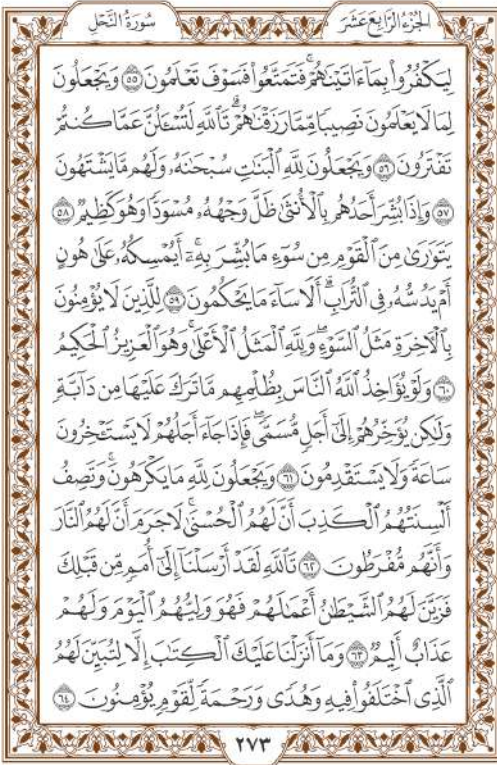 الجزء الرابع عشر
سورة النحل
لِيَكْفُرُوا۟ بِمَآ ءَاتَيْنَٰهُمْ ۚ فَتَمَتَّعُوا۟ فَسَوْفَ تَعْلَمُونَ ۝٥٥ وَيَجْعَلُونَ
لِمَا لَا يَعْلَمُونَ نَصِيبًا مِّمَّا رَزَقْنَٰهُمْ ۗ تَٱللَّهِ لَتُسْـَٔلُنَّ عَمَّا كُنتُمْ
تَفْتَرُونَ ۝٥٦ وَيَجْعَلُونَ لِلَّهِ ٱلْبَنَٰتِ سُبْحَٰنَهُۥ وَلَهُم مَّا يَشْتَهُونَ
۝٥٧ وَإِذَا بُشِّرَ أَحَدُهُم بِٱلْأُنثَىٰ ظَلَّ وَجْهُهُۥ مُسْوَدًّا وَهُوَ كَظِيمٌ ۝٥٨
يَتَوَٰرَىٰ مِنَ ٱلْقَوْمِ مِن سُوٓءِ مَا بُشِّرَ بِهِۦٓ ۚ أَيُمْسِكُهُۥ عَلَىٰ هُونٍ
أَمْ يَدُسُّهُۥ فِى ٱلتُّرَابِ ۗ أَلَا سَآءَ مَا يَحْكُمُونَ ۝٥٩ لِلَّذِينَ لَا يُؤْمِنُونَ
بِٱلْـَٔاخِرَةِ مَثَلُ ٱلسَّوْءِ ۖ وَلِلَّهِ ٱلْمَثَلُ ٱلْأَعْلَىٰ ۚ وَهُوَ ٱلْعَزِيزُ ٱلْحَكِيمُ
۝٦٠ وَلَوْ يُؤَاخِذُ ٱللَّهُ ٱلنَّاسَ بِظُلْمِهِم مَّا تَرَكَ عَلَيْهَا مِن دَآبَّةٍ
وَلَٰكِن يُؤَخِّرُهُمْ إِلَىٰٓ أَجَلٍ مُّسَمًّى ۖ فَإِذَا جَآءَ أَجَلُهُمْ لَا يَسْتَـْٔخِرُونَ
سَاعَةً وَلَا يَسْتَقْدِمُونَ ۝٦١ وَيَجْعَلُونَ لِلَّهِ مَا يَكْرَهُونَ ۚ وَتَصِفُ
أَلْسِنَتُهُمُ ٱلْكَذِبَ أَنَّ لَهُمُ ٱلْحُسْنَىٰ ۖ لَا جَرَمَ أَنَّ لَهُمُ ٱلنَّارَ
وَأَنَّهُم مُّفْرَطُونَ ۝٦٢ تَٱللَّهِ لَقَدْ أَرْسَلْنَآ إِلَىٰٓ أُمَمٍ مِّن قَبْلِكَ
فَزَيَّنَ لَهُمُ ٱلشَّيْطَٰنُ أَعْمَٰلَهُمْ فَهُوَ وَلِيُّهُمُ ٱلْيَوْمَ وَلَهُمْ
عَذَابٌ أَلِيمٌ ۝٦٣ وَمَآ أَنزَلْنَا عَلَيْكَ ٱلْكِتَٰبَ إِلَّا لِتُبَيِّنَ لَهُمُ
ٱلَّذِى ٱخْتَلَفُوا۟ فِيهِ ۙ وَهُدًى وَرَحْمَةً لِّقَوْمٍ يُؤْمِنُونَ ۝٦٤
٢٧٣